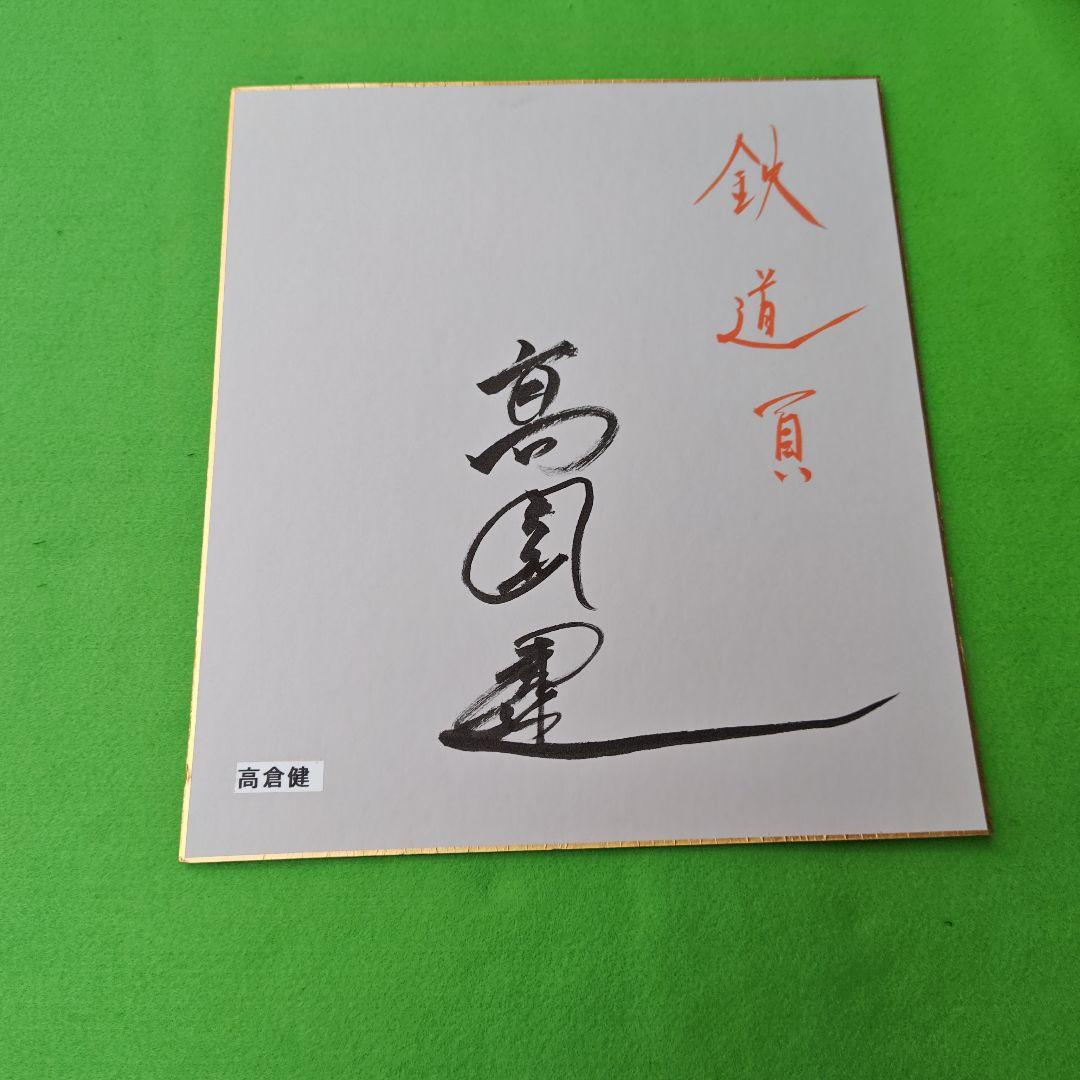 鉄道員
高倉健
高倉健